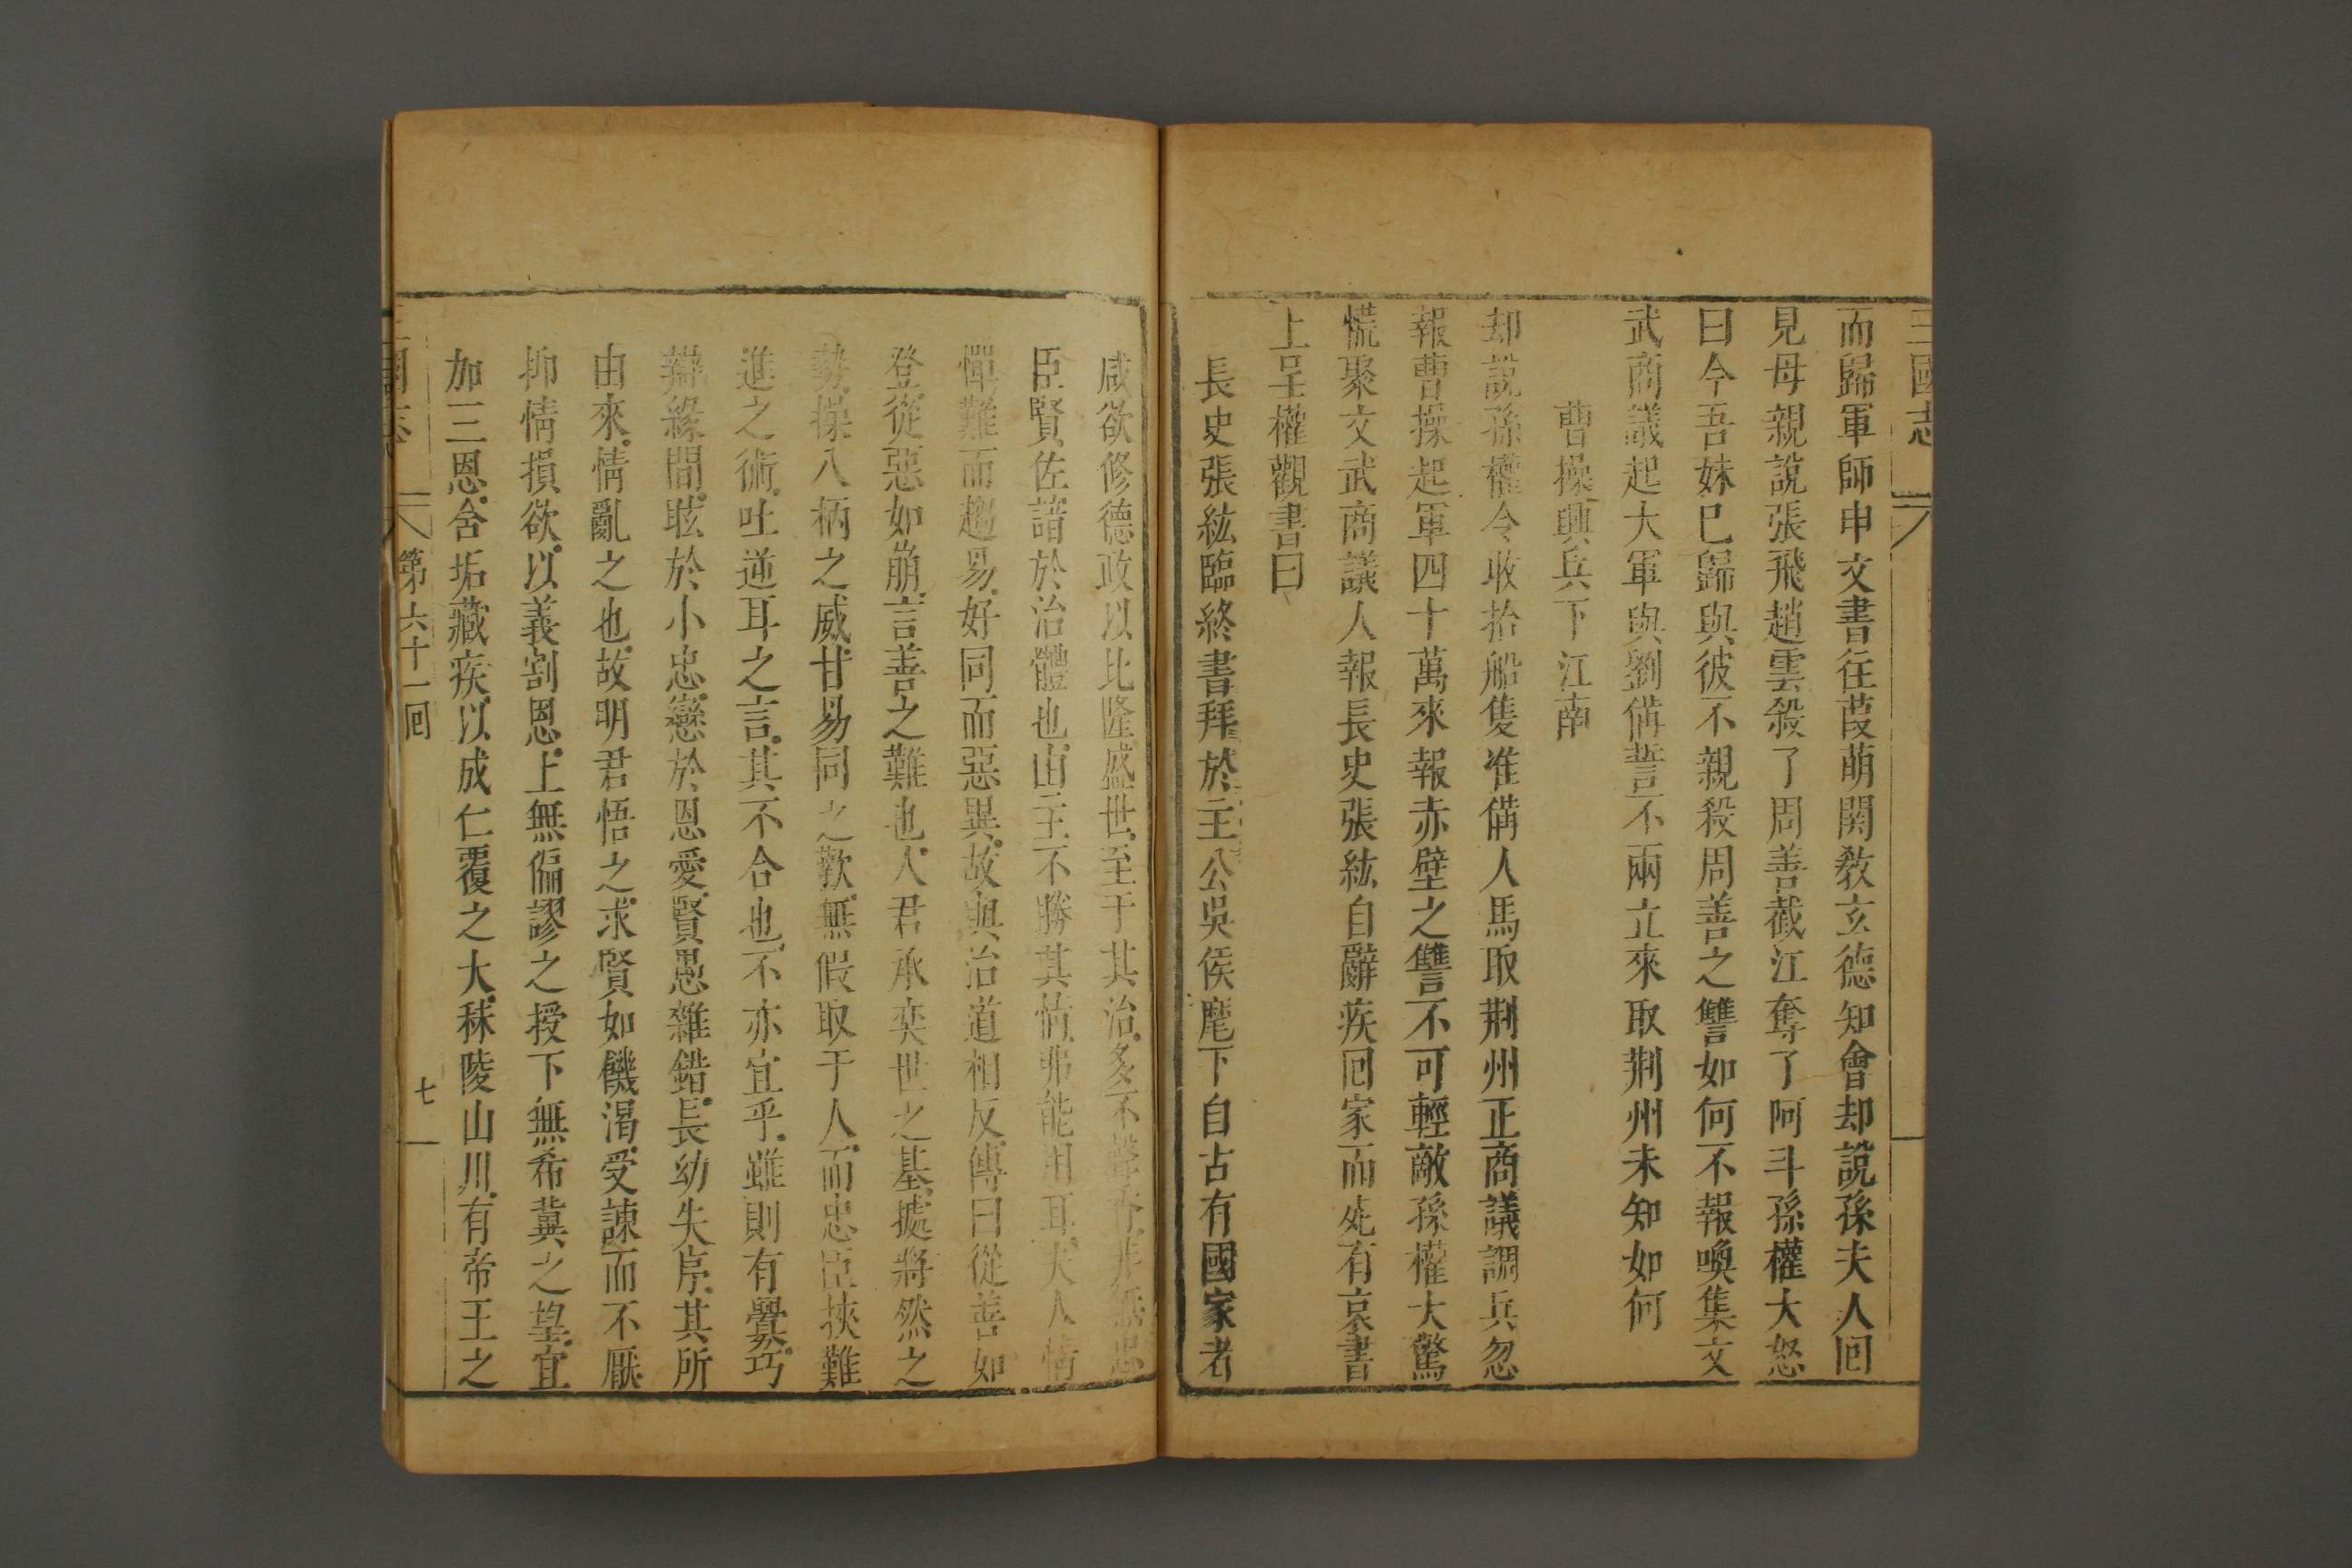 三國志
而歸軍師申文書往葭萌關敎玄德知會却說孫夫人囘
見母親說張飛趙雲殺了周善截江奪了阿斗孫權大怒
曰今吾妹已歸與彼不親殺周善之讐如何不報喚集文
武商議起大軍與劉備誓不兩立來取荆州未知如何
曹操興兵下江南
却說孫權令收拾船隻准備人馬取荆州正商議調兵忽
報曹操起軍四十萬來報赤壁之讐不可輕敵孫權大驚
慌聚文武商議人報長史張紘自辭疾囘家而死有哀書
上呈權觀書曰
長史張紘臨終書拜於主公吳侯麾下自古有國家者
咸欲修德政以比隆盛世至于其治多不馨香非無忠
臣賢佐諳於治體也由主不勝其情弗能用耳夫人情
憚難而趨易好同而惡異故與治道相反傳曰從善如
登從惡如崩言善之難也人君承奕世之基據將然之
勢操八柄之威甘易同之歡無假取于人而忠臣挾難
進之術吐逆耳之言其不合也不亦宜乎雖則有釁巧
辯緣間眩於小忠戀於恩愛賢愚雜錯長幼失序其所
由來情亂之也故明君悟之求賢如饑渴受諫而不厭
抑情損欲以義割恩上無偏謬之授下無希冀之望宜
加三恩含垢藏疾以成仁覆之大秣陵山川有帝王之
三國志 第六十一囘 七